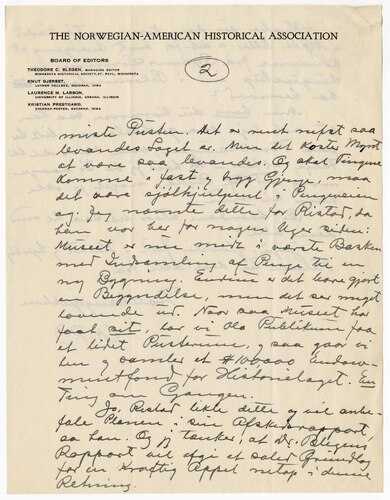 THE NORWEGIAN-AMERICAN HISTORICAL ASSOCIATION
BOARD OF EDITORS
THEODORE C. BLEGEN, MANAGING EDITOR
MINNESOTA HISTORICAL SOCIETY, ST. PAUL, MINNESOTA
KNUT GJERSET,
LUTHER COLLEGE, DECORAH, IOWA
LAURENCE M. LARSON,
UNIVERSITY OF ILLINOIS, URBANA, ILLINOIS
KRISTIAN PRESTGARD,
DECORAH-POSTEN, DECORAH, IOWA
2
miste Pusten. Det er rent nifst saa
levandes Laget er. Men det koster Mynt
at være saa levandes. Og skal Pengene
komme i fast og trygg Gjenge, maa
det være sjølhjulpent i Pengeveien
og. Jeg nævnte dette for Ristad, da
han var her for nogen Uger siden:
Museet er nu midt i værste Basken
med Indsamling af Penge til en
ny Bygning. Endnu er det bare gjort
en Begyndelse, men det ser meget
lovende ud. Naar saa Museet har
faat sit, lar vi Ola Publikum faa
et lidet Pusterum, og saa gaar vi
hen og samler et $100000 Endow-
mentfond for Historielaget. En
Ting om Gangen.
Jo, Ristad likte dette og vil anbe-
fale Planen i sin Afskedsrapport,
sa han. Og jeg tænker, at Dr. Blegens
Rapport vil afgi et solid Grundlag
for en kraftig Appel netop i denne
Retning.